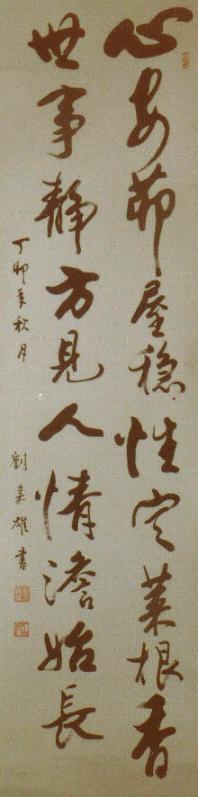 心安茆屋穩性定菜根香
世事靜方見人情澹始長
丁卯年秋月
劉嘉雄書